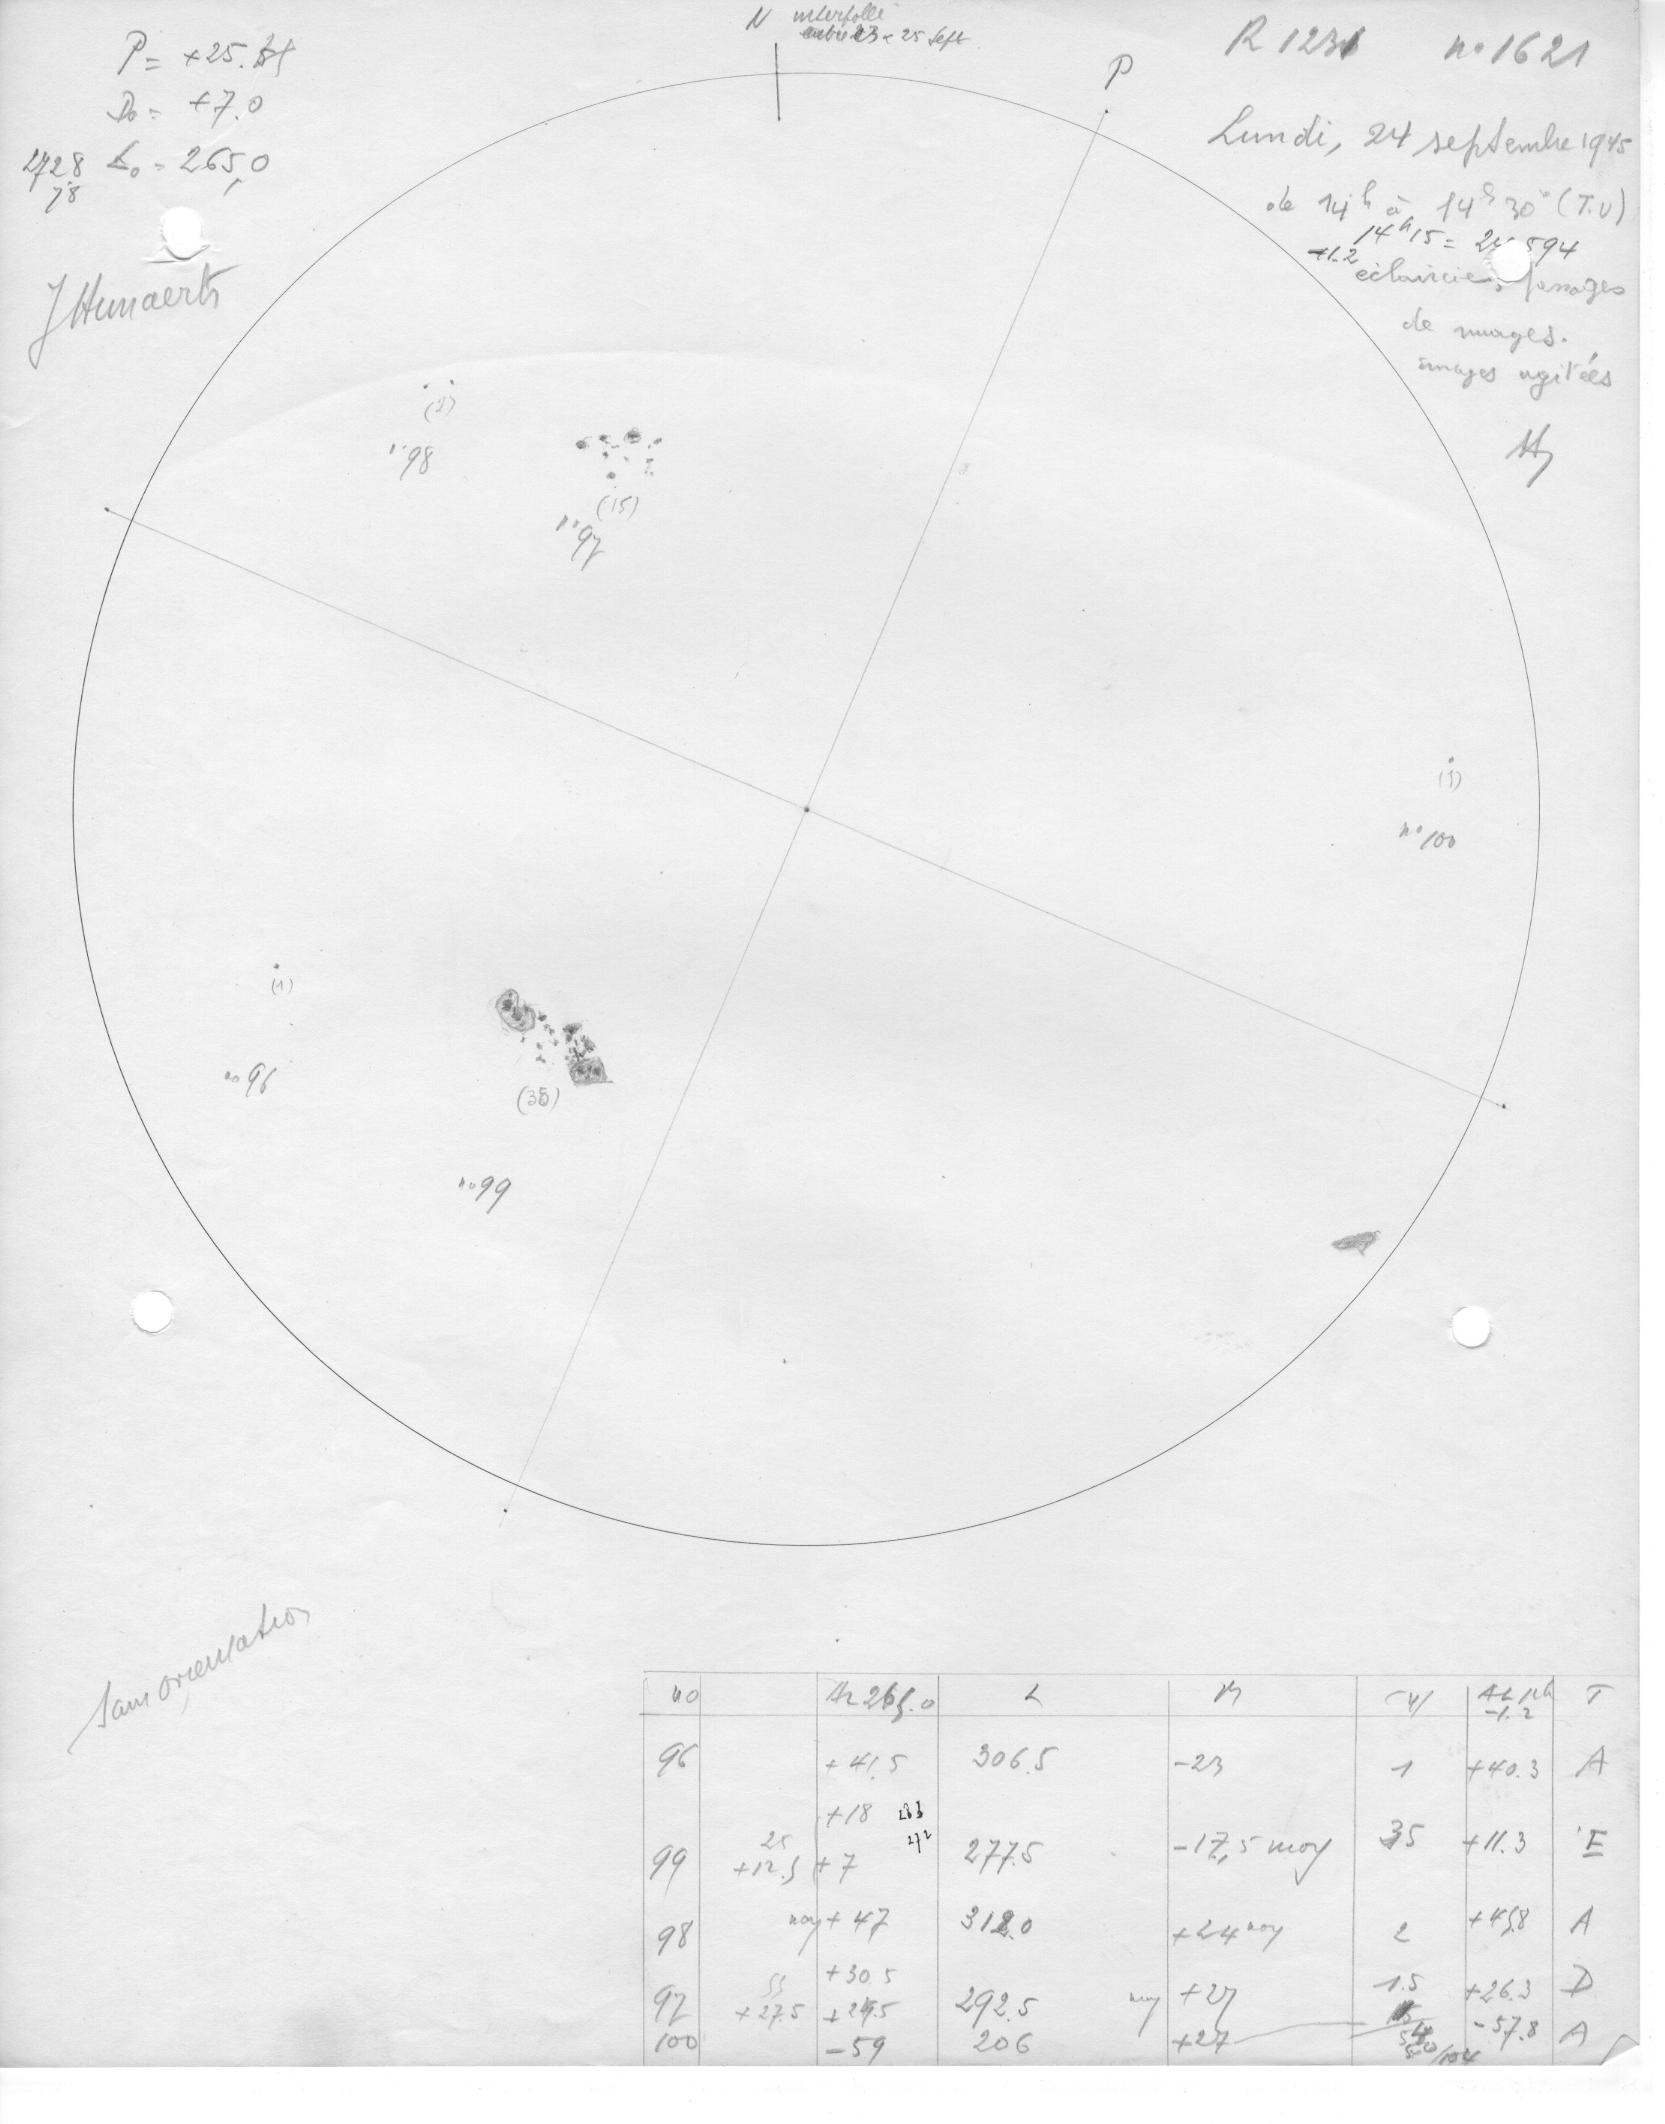 P = +25.
D₀ = +7.0
L₀ = 265,0
2728
78
J Hunaerts
N interpollé
entre 23 & 25 Sept
P
R 1231 n° 1621
Lundi, 24 septembre 1945
de 14h à 14h 30 (T.U)
14h15 = 24 594
+1.2
éclaircies, passages
de nuages.
images agitées
(2)
n°98
(15)
n°97
(1)
n°100
(1)
n°96
(35)
n°99
Sans orientation
no 265.0 L T
-1.2
96 +41.5 306.5 -23 1 +40.3 A
+18 283
25 272
99 +12.5 +7 277.5 -17,5 moy 35 +11.3 E
98 moy +47 312.0 +24 moy 2 +45.8 A
55 +30.5 15 D
97 +27.5 +24.5 292.5 moy +27 +26.3
100 -59 206 +27 -57.8 A